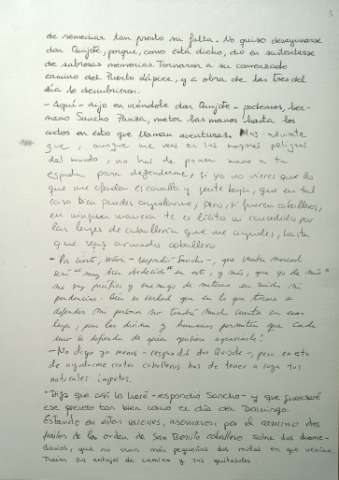 de remediar tan presto su falta. No quiso desayunarse
don Quijote, porque, como está dicho, dio en sustentarse
de sabrosas memorias. Tornaron a su comenzado
camino del Puerto Lápice, y a obra de las tres del
día le descubrieron.
- Aquí - dijo en viéndole don Quijote - podemos, her-
mano Sancho Panza, meter las manos hasta los
codos en esto que llaman aventuras. Mas advierte
que, aunque me veas en los mayores peligros
del mundo, no has de poner mano a tu
espada para defenderme, si ya no vieres que los
que me ofenden es canalla y gente baja, que en tal
caso bien puedes ayudarme; pero, si fueren caballeros,
en ninguna manera te es lícito ni concedido por
las leyes de caballería que me ayudes, hasta
que seas armado caballero.
- Por cierto, señor - respondió Sancho -, que vuestra merced
será muy bien obedecido en esto, y más, que yo de mío
me soy pacífico y enemigo de meterme en ruidos ni
pendencias. Bien es verdad que en lo que tocare a
defender mi persona no tendré mucha cuenta con esas
leyes, pues las divinas y humanas permiten que cada
uno se defienda de quien quisiere agraviarle.
- No digo yo menos - respondió don Quijote -, pero en esto
de ayudarme contra caballeros has de tener a raya tus
naturales ímpetus.
- Digo que así lo haré - respondió Sancho - y que guardaré
ese precepto tan bien como el día del Domingo.
Estando en estas razones, asomaron por el camino dos
frailes de la orden de San Benito caballeros sobre dos drome-
darios, que no eran más pequeñas dos mulas en que venían.
Traían sus antojos de camino y sus quitasoles.